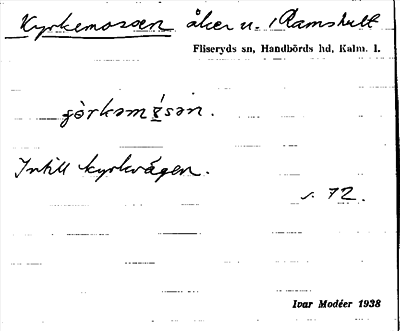 Kyrkemossen åker u. Ramshult
Fliseryds sn, Handbörds hd, Kalm. l.
Intill kyrkvägen.
s. 72.
Ivar Modéer 1938